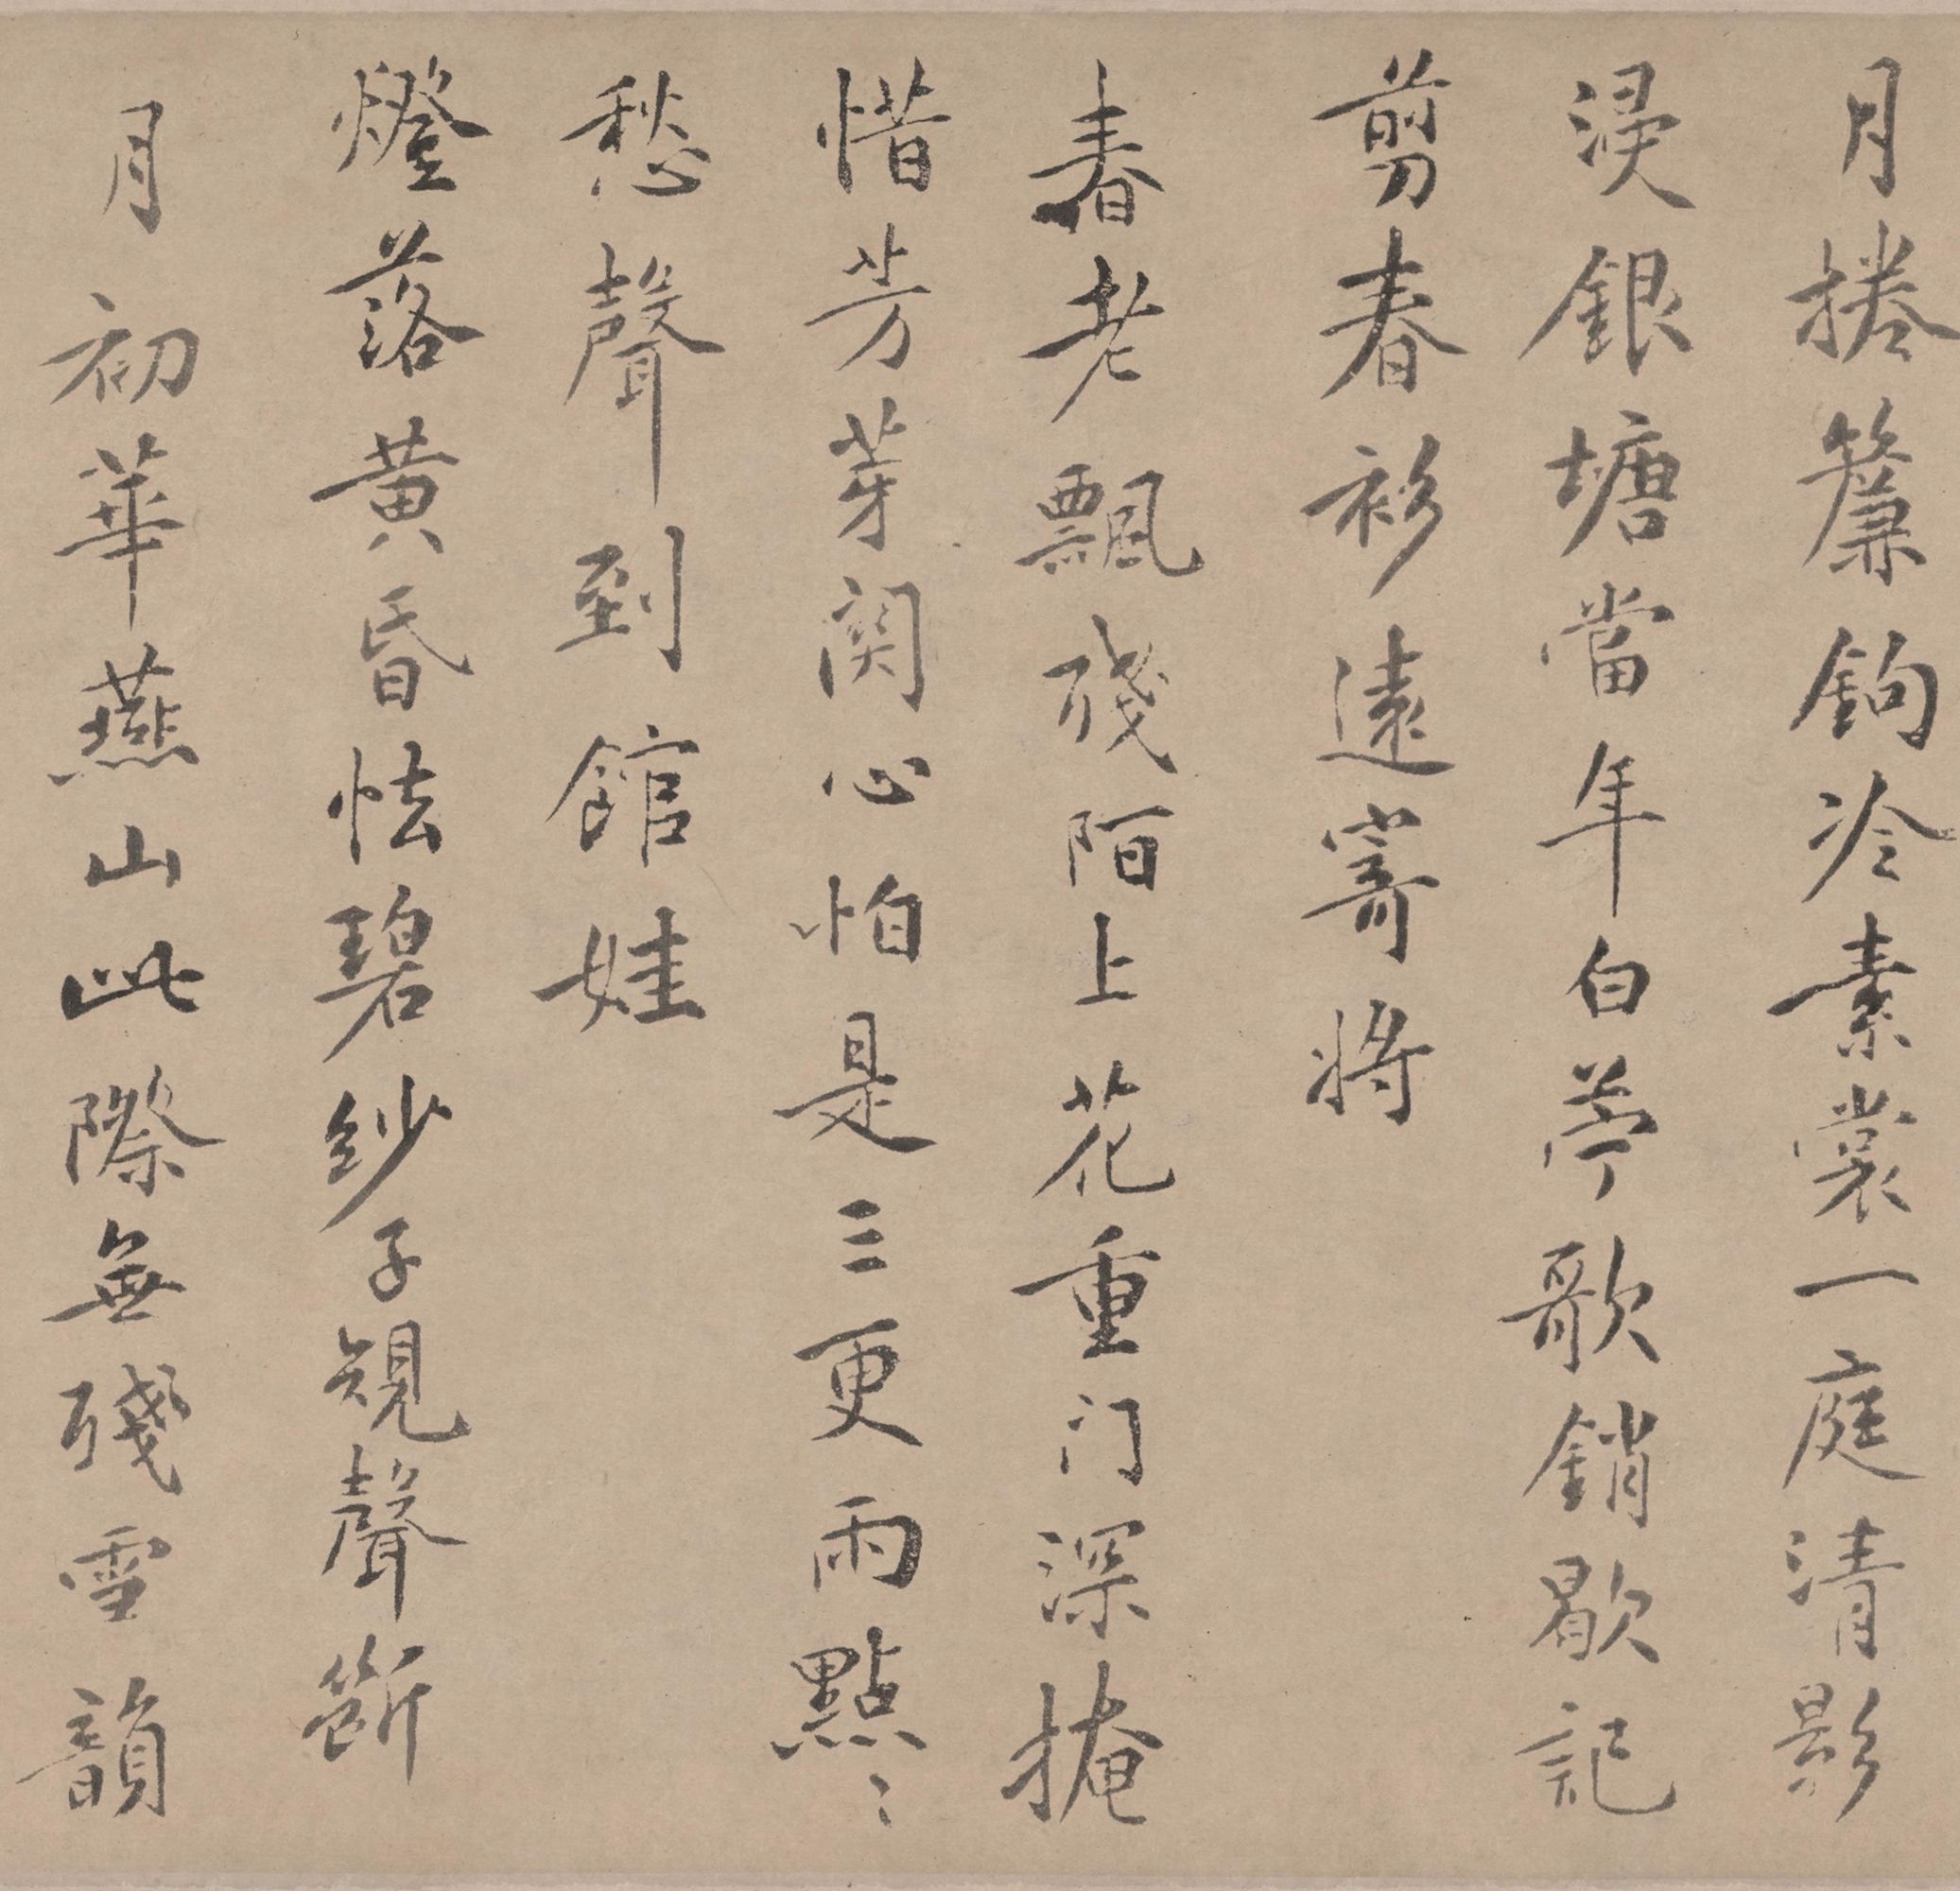 月捲簾鉤冷素裳一庭清影
浸銀塘當年白苧歌銷歇記
剪春衫遠寄將
春老飄殘陌上花重门深掩
惜芳芽関心怕是三更雨點〻
愁聲到館娃
燈落黄昏怯碧紗子規聲斷
月初華燕山此際無殘雪韻